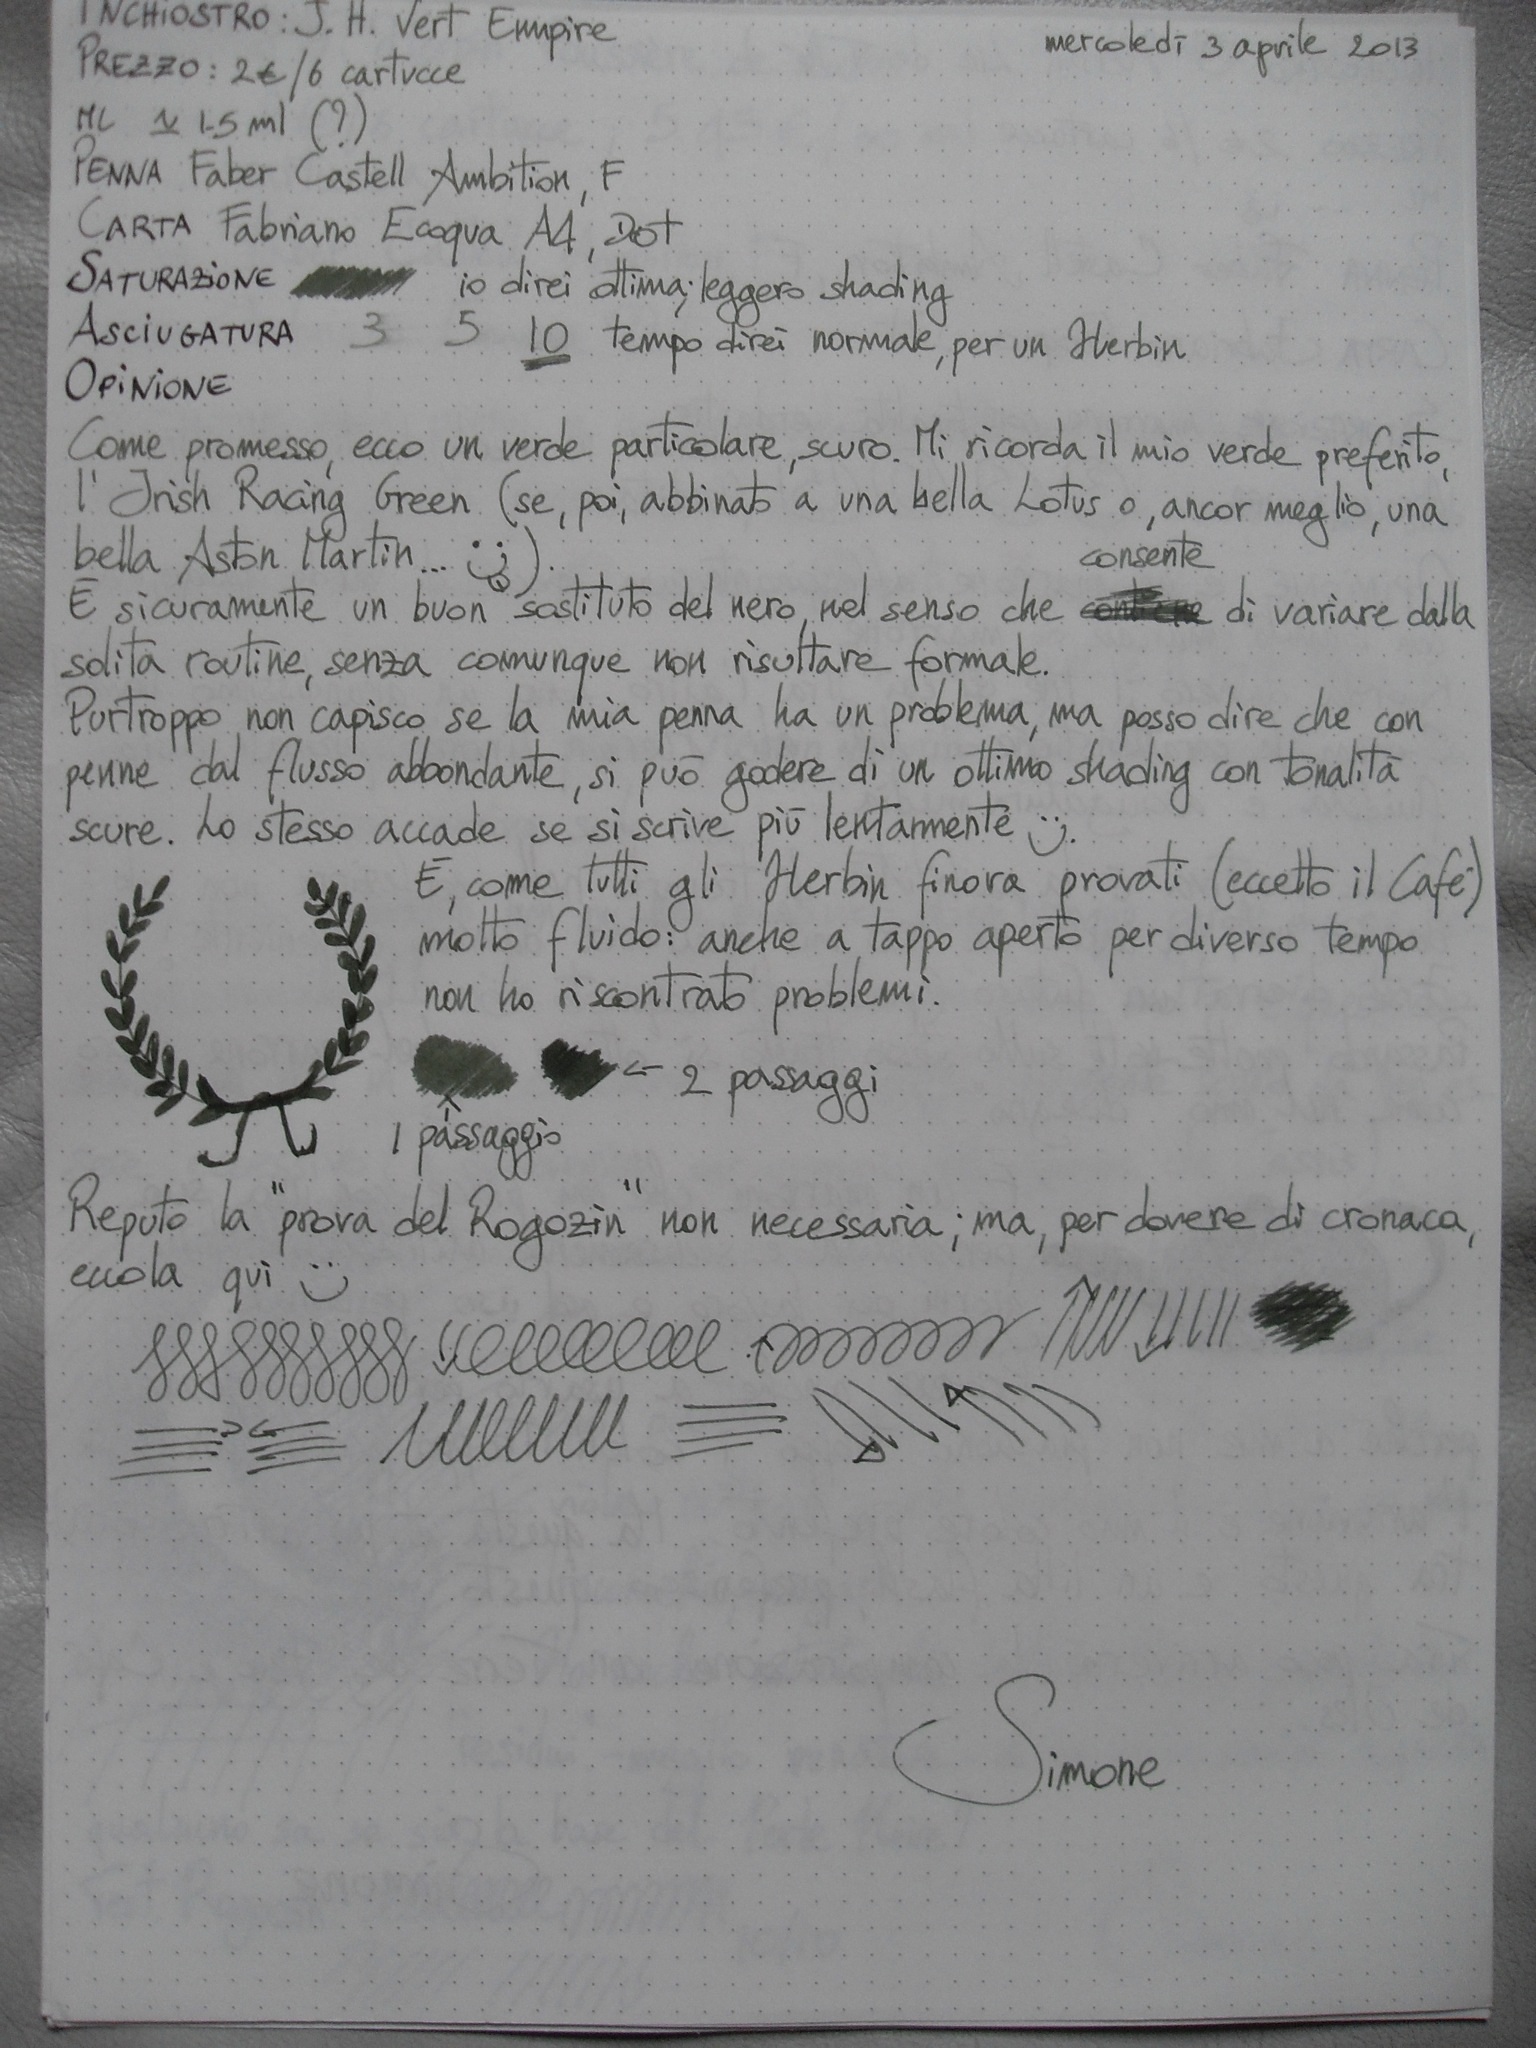 INCHIOSTRO: J. H. Vert Empire
mercoledì 3 aprile 2013
PREZZO: 2€/6 cartucce
ML ≃ 1.5 ml (?)
PENNA Faber Castell Ambition, F
CARTA Fabriano Ecoqua A4, Dot
SATURAZIONE io direi ottima; leggero shading
ASCIUGATURA 3 5 10 tempo direi normale, per un Herbin
OPINIONE
Come promesso, ecco un verde particolare, scuro. Mi ricorda il mio verde preferito,
l'Irish Racing Green (se, poi, abbinato a una bella Lotus o, ancor meglio, una
bella Aston Martin... :)).
consente
È sicuramente un buon sostituto del nero, nel senso che contiene di variare dalla
solita routine, senza comunque non risultare formale.
Purtroppo non capisco se la mia penna ha un problema, ma posso dire che con
penne dal flusso abbondante, si può godere di un ottimo shading con tonalità
scure. Lo stesso accade se si scrive più lentamente :).
È, come tutti gli Herbin finora provati (eccetto il Café)
molto fluido: anche a tappo aperto per diverso tempo
non ho riscontrato problemi.
← 2 passaggi
1 passaggio
Reputo la "prova del Rogozin" non necessaria; ma, per dovere di cronaca,
eccola qui :)
Simone